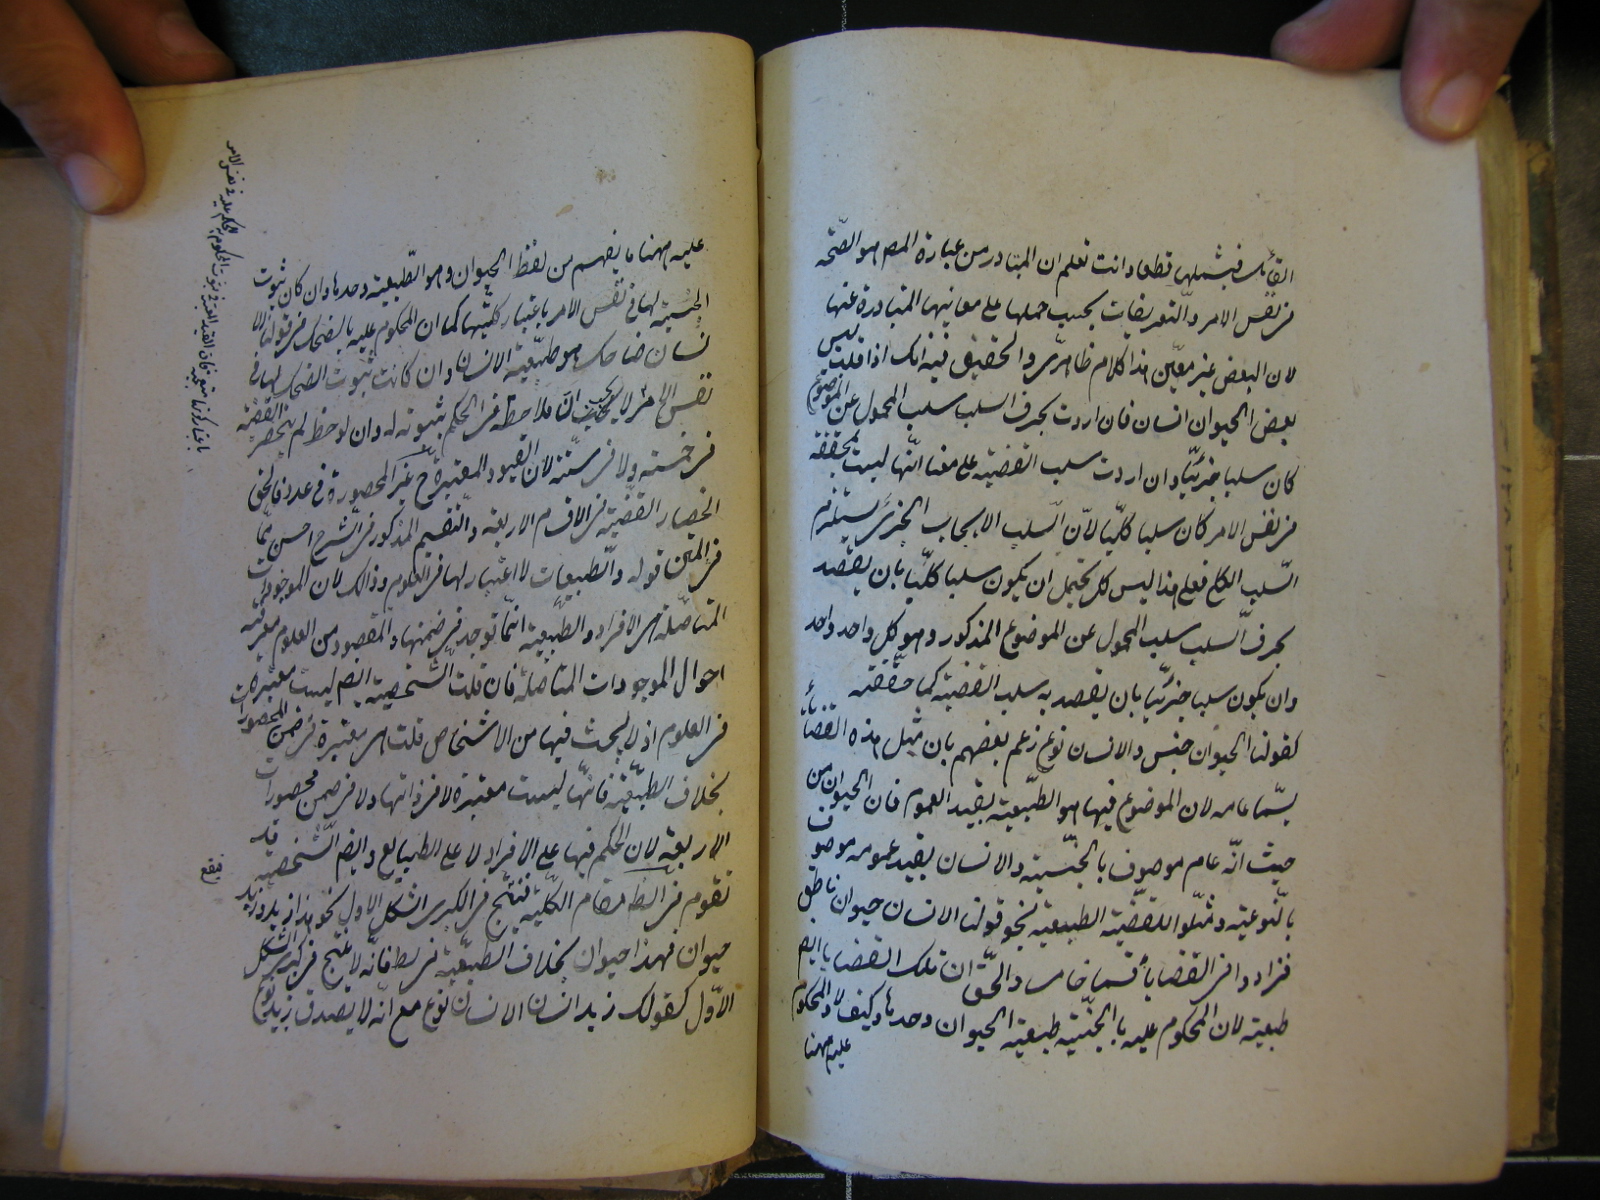 القائل فيشملها قطعا وانت تعلم ان المتبادر من عبارة المص هو الصّحة
فى نفس الامر والتعريفات يجب حملها على معانيها المتبادرة عنها
لان البعض غير معيّن هذا كلام ظاهرى والتحقيق فيه انك اذا قلت ليس
بعض الحيوان انسان فان اردت بحرف السلب سلب المحمول عن الموضوع
كان سلبا جزئيّا وان اردت سلب القضية على معنا انّها ليست محققة
فى نفس الامر كان سلبا كليّا لانّ السلب الايجاب الجزئى يستلزم
السّلب الكلى فعلى هذا ليس كل يحتمل ان يكون سلبا كليّا بان يقصد
بحرف السلب سلب المحمول عن الموضوع المذكور وهو كل واحد واحد
وان يكون سلبا جزئيّا بان يقصد به سلب القضية كما حققته
كقولنا الحيوان جنس والانسان نوع زعم بعضهم بان مثل هذه القضايا
يسمّا عامه لان الموضوع فيها هو الطبيعية بقيد العموم فان الحيوان من
حيث انّه عام موصوف بالجنسية والانسان بقيد عمومه موصوف
بالنوعية ومثّلوا للقضية الطبيعية بنحو قولنا الانسان حيوان ناطق
فزادوا فى القضايا قسما خامسا والحق ان تلك القضايا ايض
طبعية لان المحكوم عليه بالجنسية طبيعية الحيوان وحدها وكيف لا والمحكوم
عليه ههنا
عليه ههنا ما يفهم من لفظ الحيوان وهو الطبيعية وحدها وان كان ثبوت
الجنسية لها فى نفس الامر باعتبار كليتها كما ان المحكوم عليه بالضحك فى قولنا الا
نسان ضاحك هو طبيعية الانسان وان كانت ثبوت الضحك لها فى
نفس الامر لا يجب ملاحظة فى الحكم بثبوته له وان لوحظ لم ينحصر القضية
فى خمسة ولا فى ستة لان القيود المعتبرة ح غير المحصورة فى عدد فالحق
انحصار القضية فى الاقسام الاربعة والتقسيم المذكور فى الشرح احسن ممّا
فى المتن قوله والطبيعات لا اعتبار لها فى العلوم وذالك لان الموجودات
المتاصّلة هى الافراد والطبيعية انما توجد فى ضمنها والمقصود من العلوم معرفة
احوال الموجودات المتاصّلة فان قلت الشخصية ايض ليست معتبرة
فى العلوم اذ لا يبحث فيها من الاشخاص قلت هى معتبرة فى ضمن المحصورات
بخلاف الطبيعية فانّها ليست معتبرة لا فى ذاتها ولا فى ضمن محصورات
الاربعة لان الحكم فيها على الافراد لا على الطبايع وايض الشخصية قد
تقوم فى الظ مقام الكلية فتنتج فى الكبرى الشكل الاول نحو هذا زيد وزيد
حيوان فهذا حيوان بخلاف الطبيعية فانّه لا ينتج فى كبرى الشكل
الاوّل كقولك زيد انسان الانسان نوع مع انّه لا يصدق زيد نوع